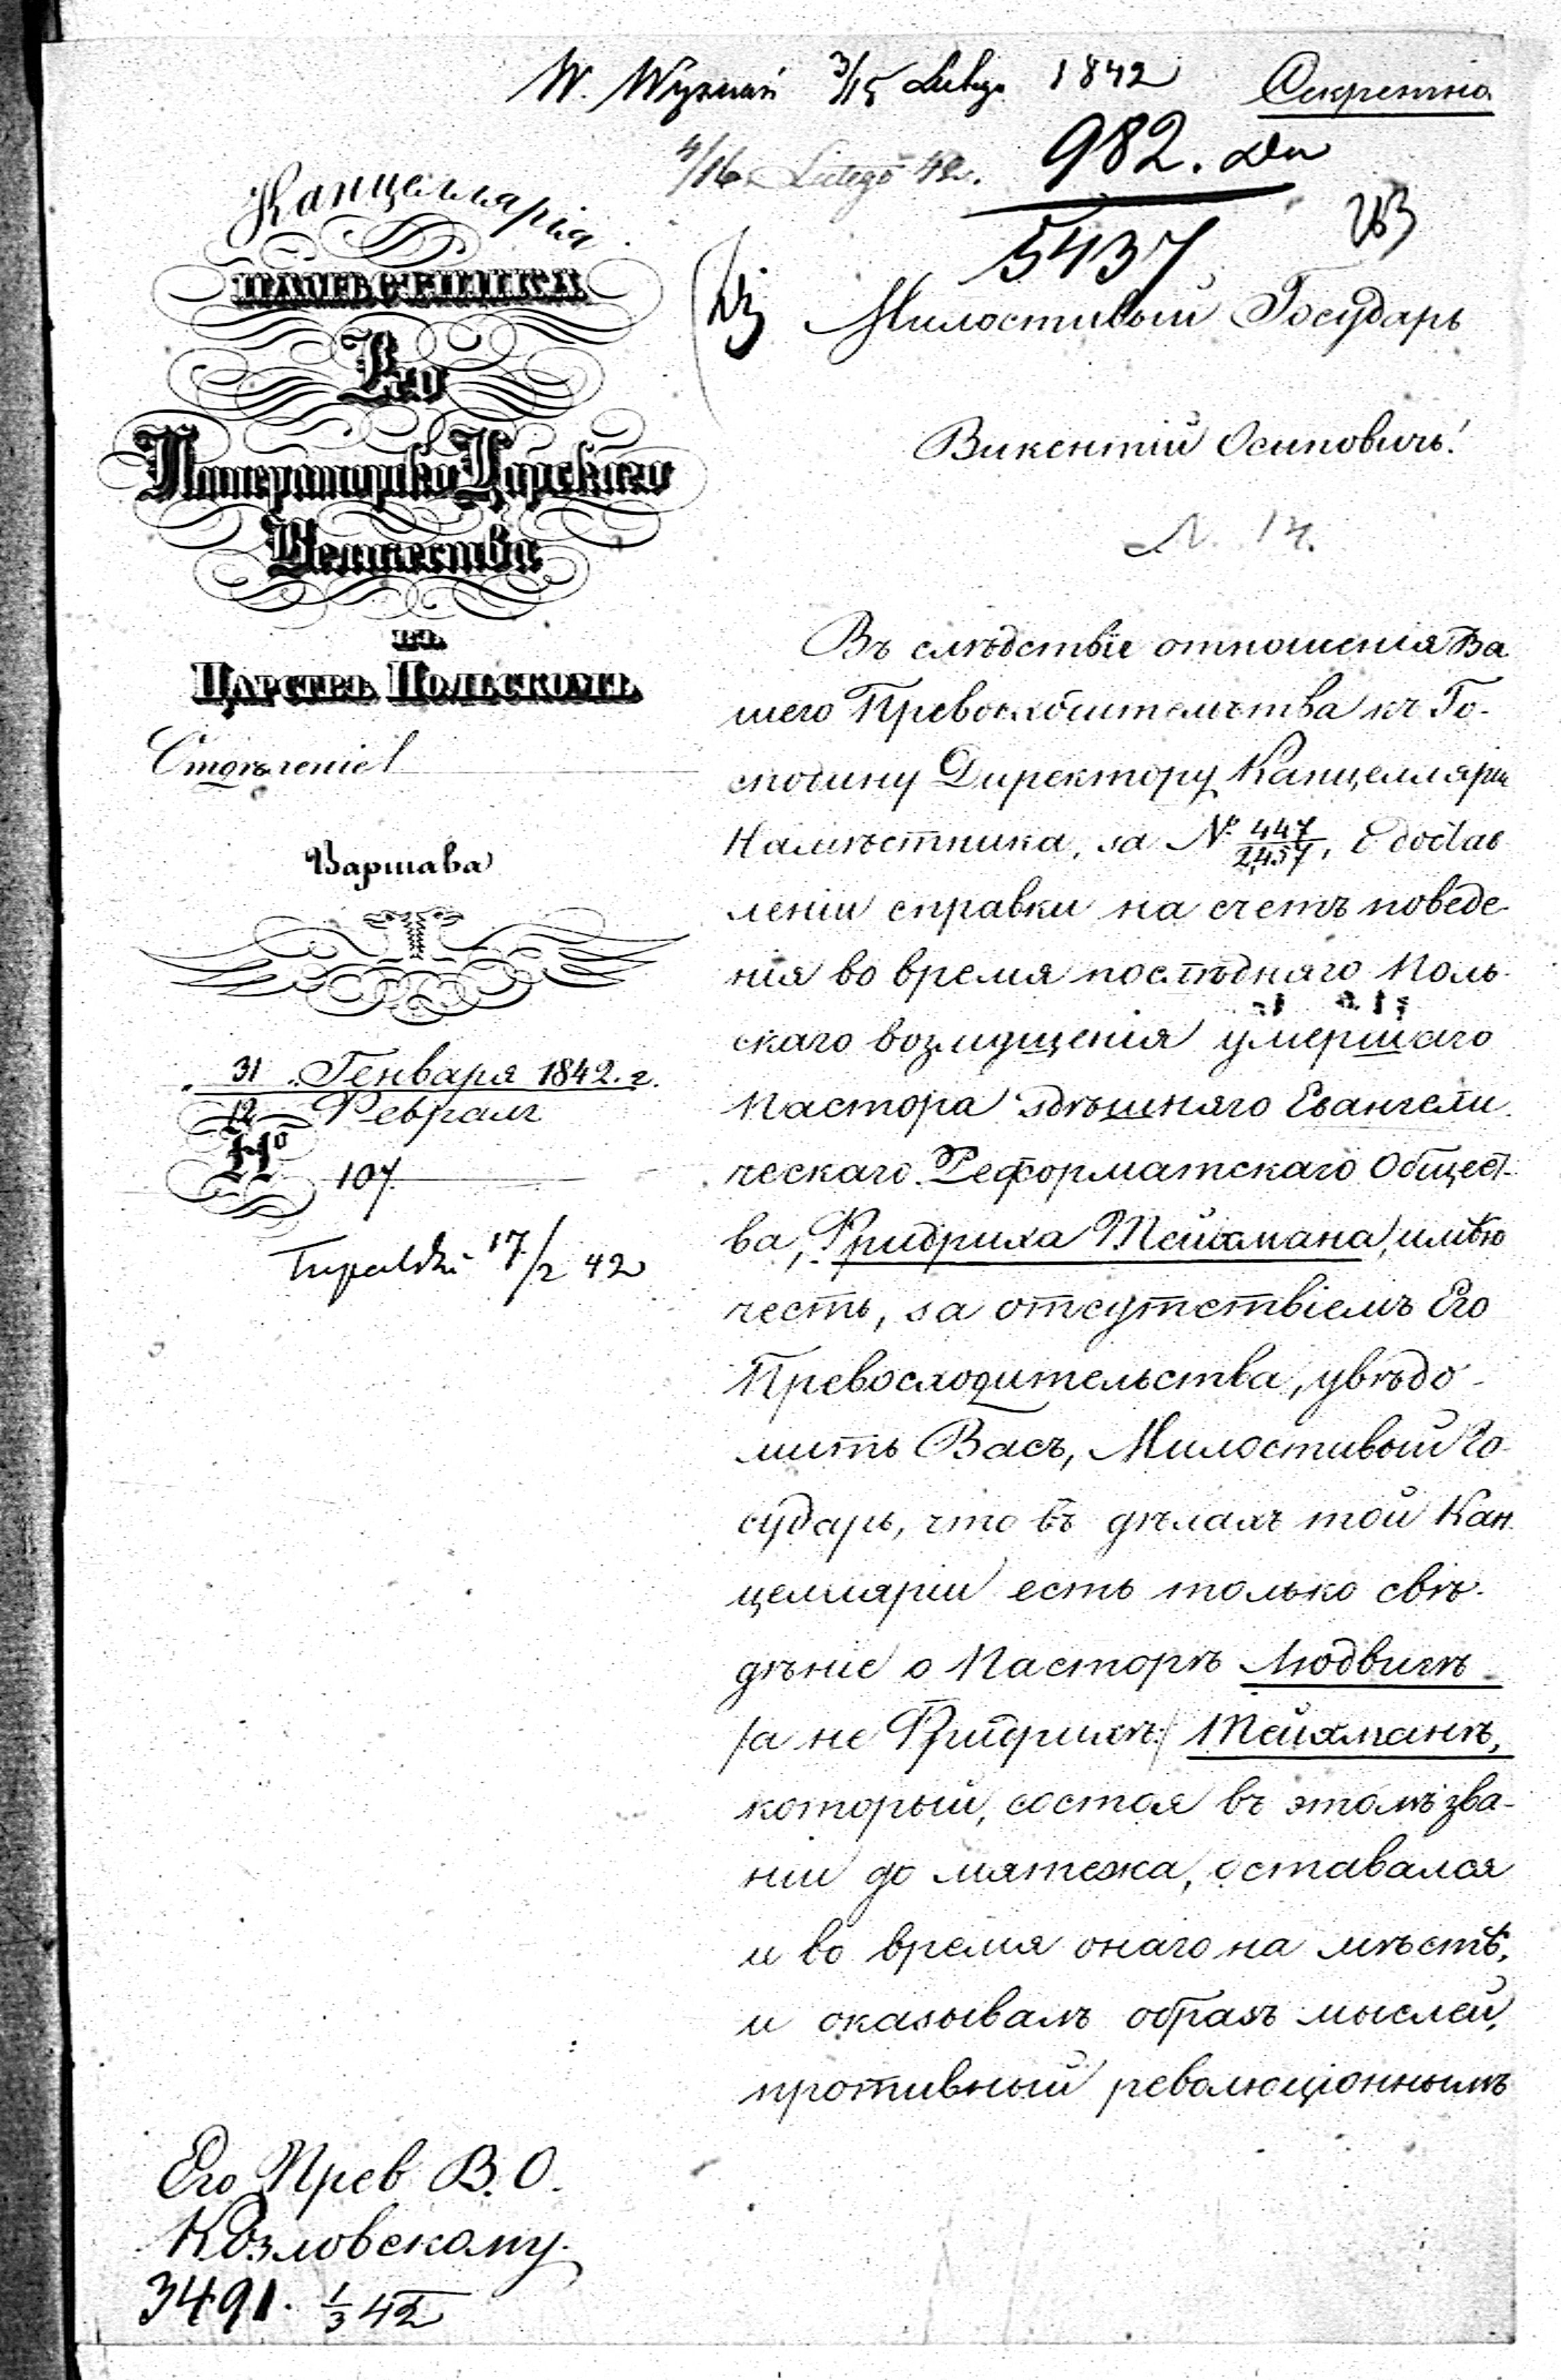 W. Wyznań 3/15 Lutego 1842
Секретно.
4/16 Lutego 42.
982.
5437
Канцеллярія
НАМѢСТНИКА
Его
Императорско Царскаго
Величества
ВЪ
ЦАРСТВѢ ПОЛЬСКОМЪ
Отдѣленіе 1
Варшава
31 Генваря 1842. г.
12 Февраля
№ 107
17/2 42
Милостивый Государь
Викентій Осиповичъ!
N. 14.
Въ слѣдствіе отношенія Ва
шего Превосходительства къ Го-
сподину Директору Канцелляріи
Намѣстника, за № 447/2,457, о достав
леніи справки на счетъ поведе-
нія во время послѣдняго Поль-
скаго возмущенія умершаго
Пастора здѣшняго Евангели
ческаго Реформатскаго Общест-
ва, Фридриха Тейхмана, имѣю
честь, за отсутствіемъ Его
Превосходительства, увѣдо-
мить Васъ, Милостивый Го-
сударь, что въ дѣлахъ той Кан
целляріи есть только свѣ-
дѣніе о Пасторѣ Людвигѣ
/а не Фридрихѣ/ Тейхманѣ,
который, состоя въ этомъ зва-
ніи до мятежа, оставался
и во время онаго на мѣстѣ,
и оказывалъ образъ мыслей,
противный революціоннымъ
Его Прев В. О.
Козловскому.
3491. 1/3 42